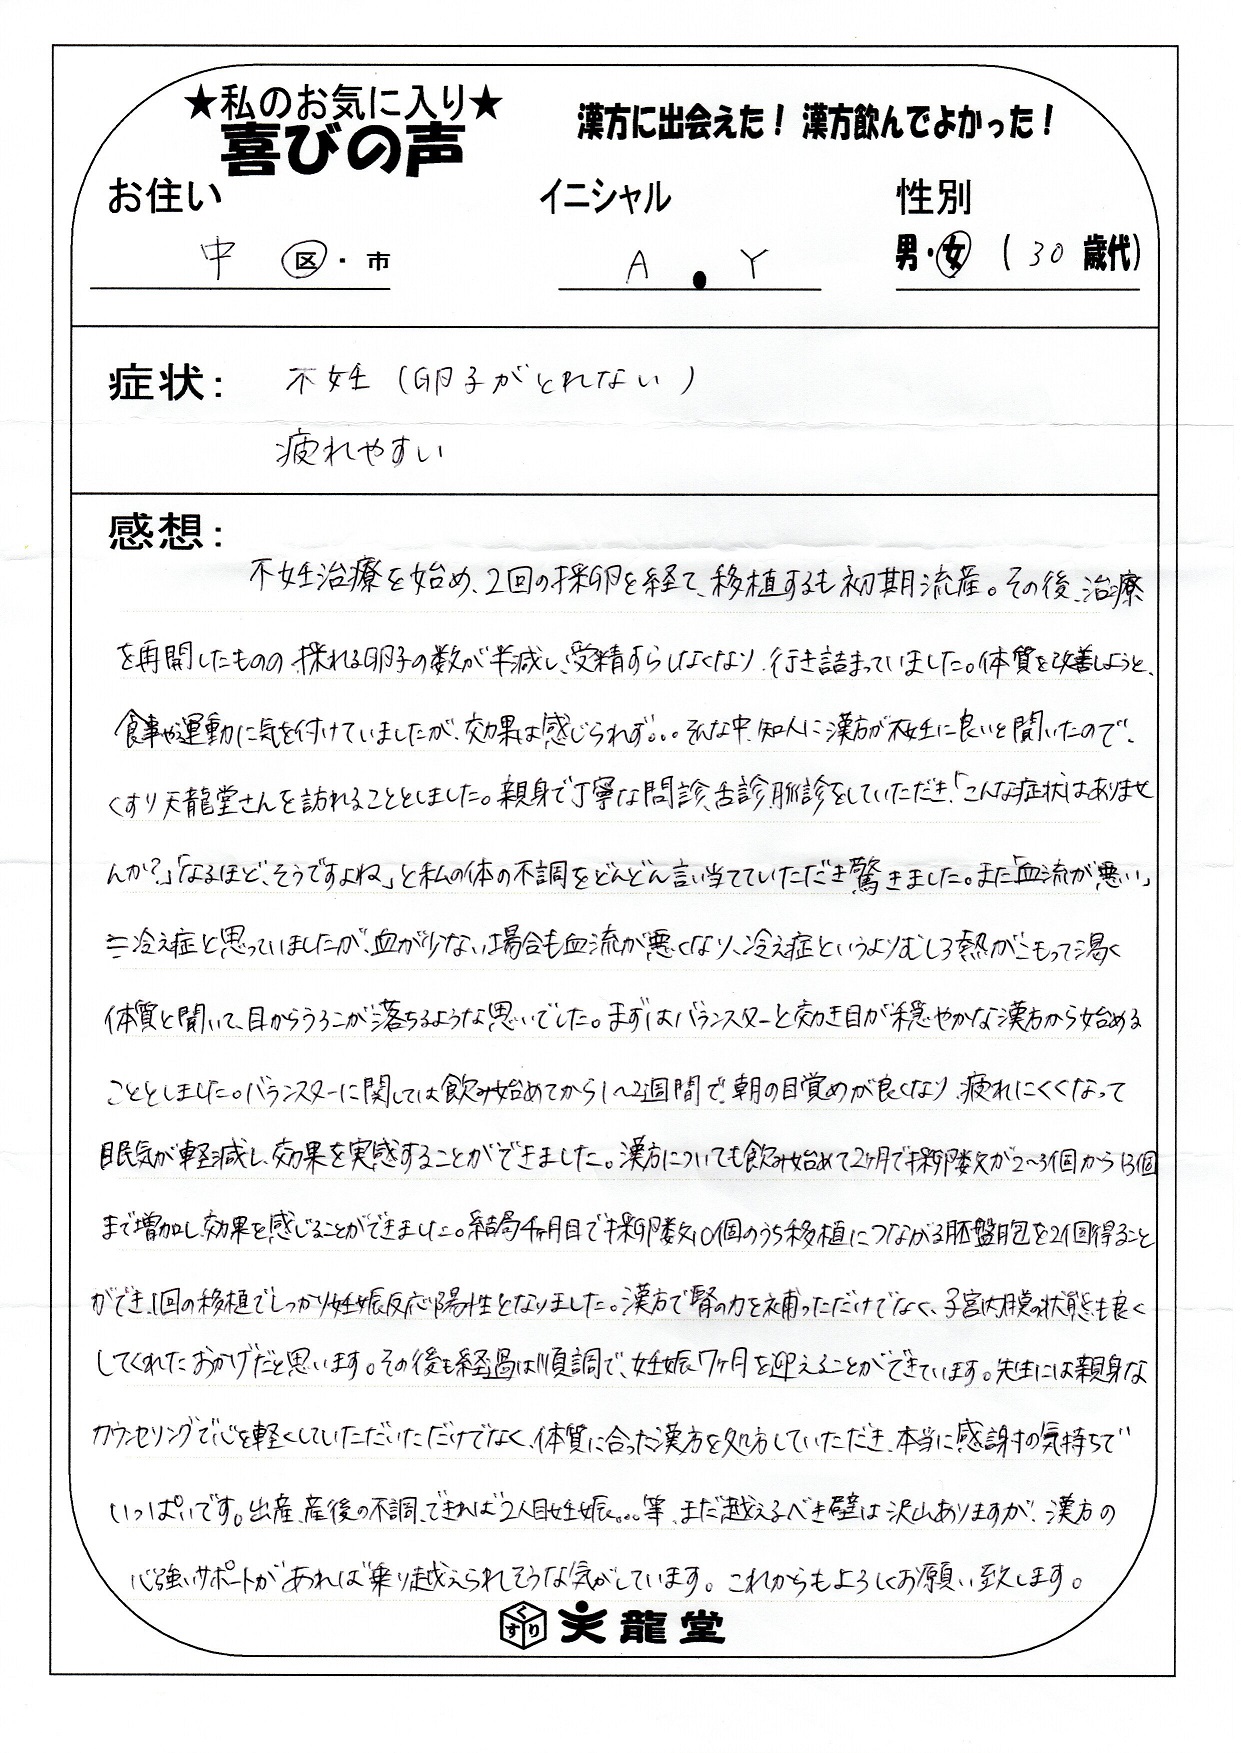 ★私のお気に入り★
喜びの声
漢方に出会えた！漢方飲んでよかった！
お住い イニシャル 性別
中 区・市 A . Y 男・女 (30 歳代)
症状： 不妊（卵子がとれない）
疲れやすい
感想：
不妊治療を始め、2回の採卵を経て、移植するも初期流産。その後、治療
を再開したものの、採れる卵子の数が半減し、受精すらしなくなり、行き詰まっていました。体質を改善しようと、
食事や運動に気を付けていましたが、効果は感じられず…。そんな中、知人に漢方が不妊に良いと聞いたので、
くすり天龍堂さんを訪れることとしました。親身で丁寧な問診、舌診、脈診をしていただき、「こんな症状はありませ
んか？」「なるほど、そうですよね」と私の体の不調をどんどん言い当てていただき驚きました。また「血流が悪い」
≒冷え症と思っていましたが、血が少ない場合も血流が悪くなり、冷え症というよりむしろ熱がこもって渇く
体質と聞いて、目からうろこが落ちるような思いでした。まずはバランスターと効き目が穏やかな漢方から始める
こととしました。バランスターに関しては飲み始めてから1～2週間で、朝の目覚めが良くなり、疲れにくくなって
眠気が軽減し、効果を実感することができました。漢方についても飲み始めて2ヶ月で採卵数が2～3個から13個
まで増加し、効果を感じることができました。結局4ヶ月目で採卵数10個のうち移植につながる胚盤胞を2個得ること
ができ、1回の移植でしっかり妊娠反応陽性となりました。漢方で腎の力を補っただけでなく、子宮内膜の状態も良く
してくれたおかげだと思います。その後も経過は順調で、妊娠7ヶ月を迎えることができています。先生には親身な
カウンセリングで心を軽くしていただいただけでなく、体質に合った漢方を処方していただき、本当に感謝の気持ちで
いっぱいです。出産、産後の不調、できれば2人目妊娠…等、まだ越えるべき壁は沢山ありますが、漢方の
心強いサポートがあれば乗り越えられそうな気がしています。これからもよろしくお願い致します。
くすり 天龍堂